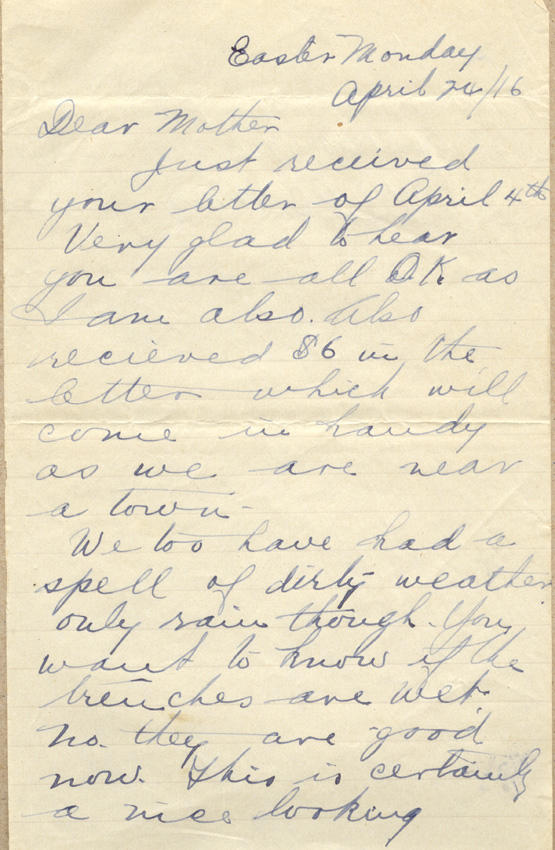 Easter Monday
April 24/16
Dear Mother
Just received
your letter of April 4th
Very glad to hear
you are all O.K. as
I am also. Also
recieved $6 in the
letter which will
come in handy
as we are near
a town.
We too have had a
spell of dirty weather
only rain though. You
want to know if the
trenches are wet.
No. they are good
now. This is certainly
a nice looking